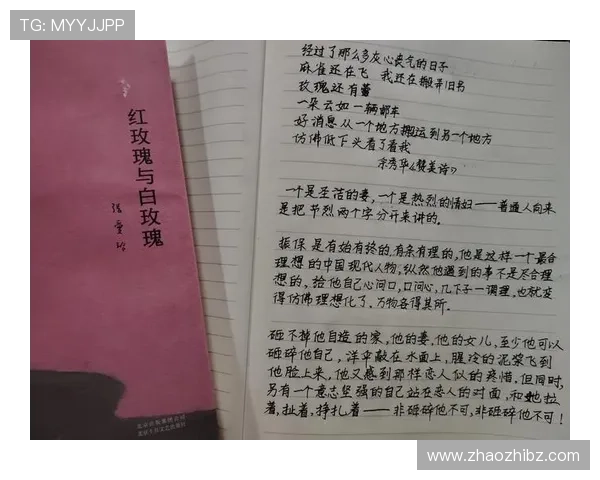 TG: MYYJJPP
红玫瑰与白玫瑰
张爱玲
经过了那么多灰心丧气的日子
麻雀还在飞 我还在搬弄旧书
玫瑰还有蕾
一朵云如一辆邮车
好消息从一个地方搬运到另一个地方
仿佛低下头看了看我
余秀华《赞美诗》
一个是圣洁的妻,一个是热烈的情妇——普通人向来
是把节烈两个字分开来讲的。
振保是有始有终的,有条有理的,他是这样一个最合
理想的中国现代人物,纵然他遇到的事不是尽合理
想的,给他自己心问口,口问心,几下子一调理,也就变
得仿佛理想化了,万物各得其所。
砸不掉他自造的家,他的妻,他的女儿,至少他可以
砸碎他自己,洋伞敲在水面上,腥冷的泥浆飞到
他脸上来,他又感到那样恋人似的疼惜,但同时,
另有一个意志坚强的自己站在恋人的对面,和她拉
着,扯着,挣扎着——非砸碎他不可,非砸碎他不可!
www.zhaozhibz.com